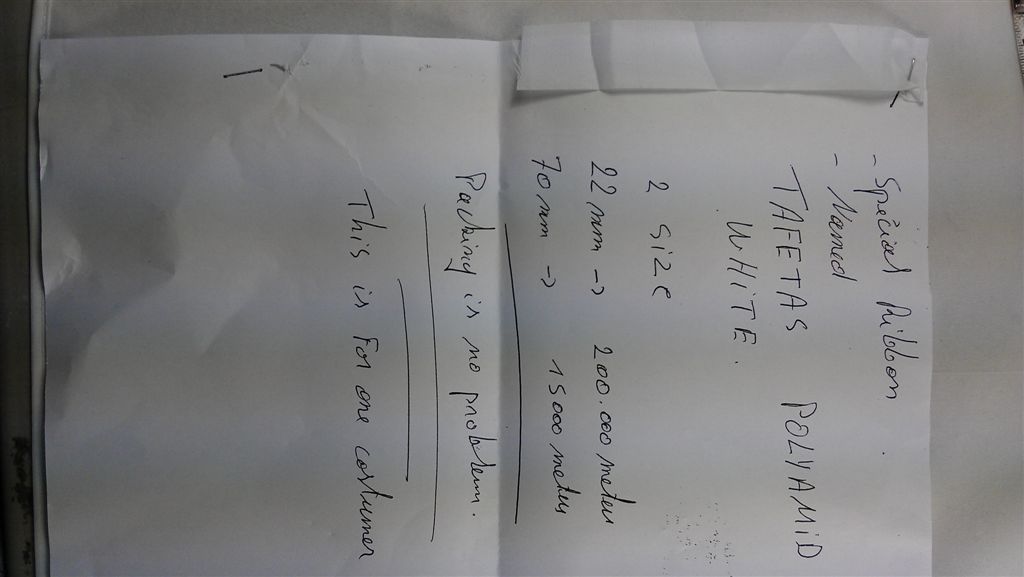 - Spécial Ribbon.
- Named
TAFETAS POLYAMID
WHITE.
2 Size
22 mm -> 200.000 meters
70 mm -> 15000 meters
Packing is no problem.
This is For one costumer